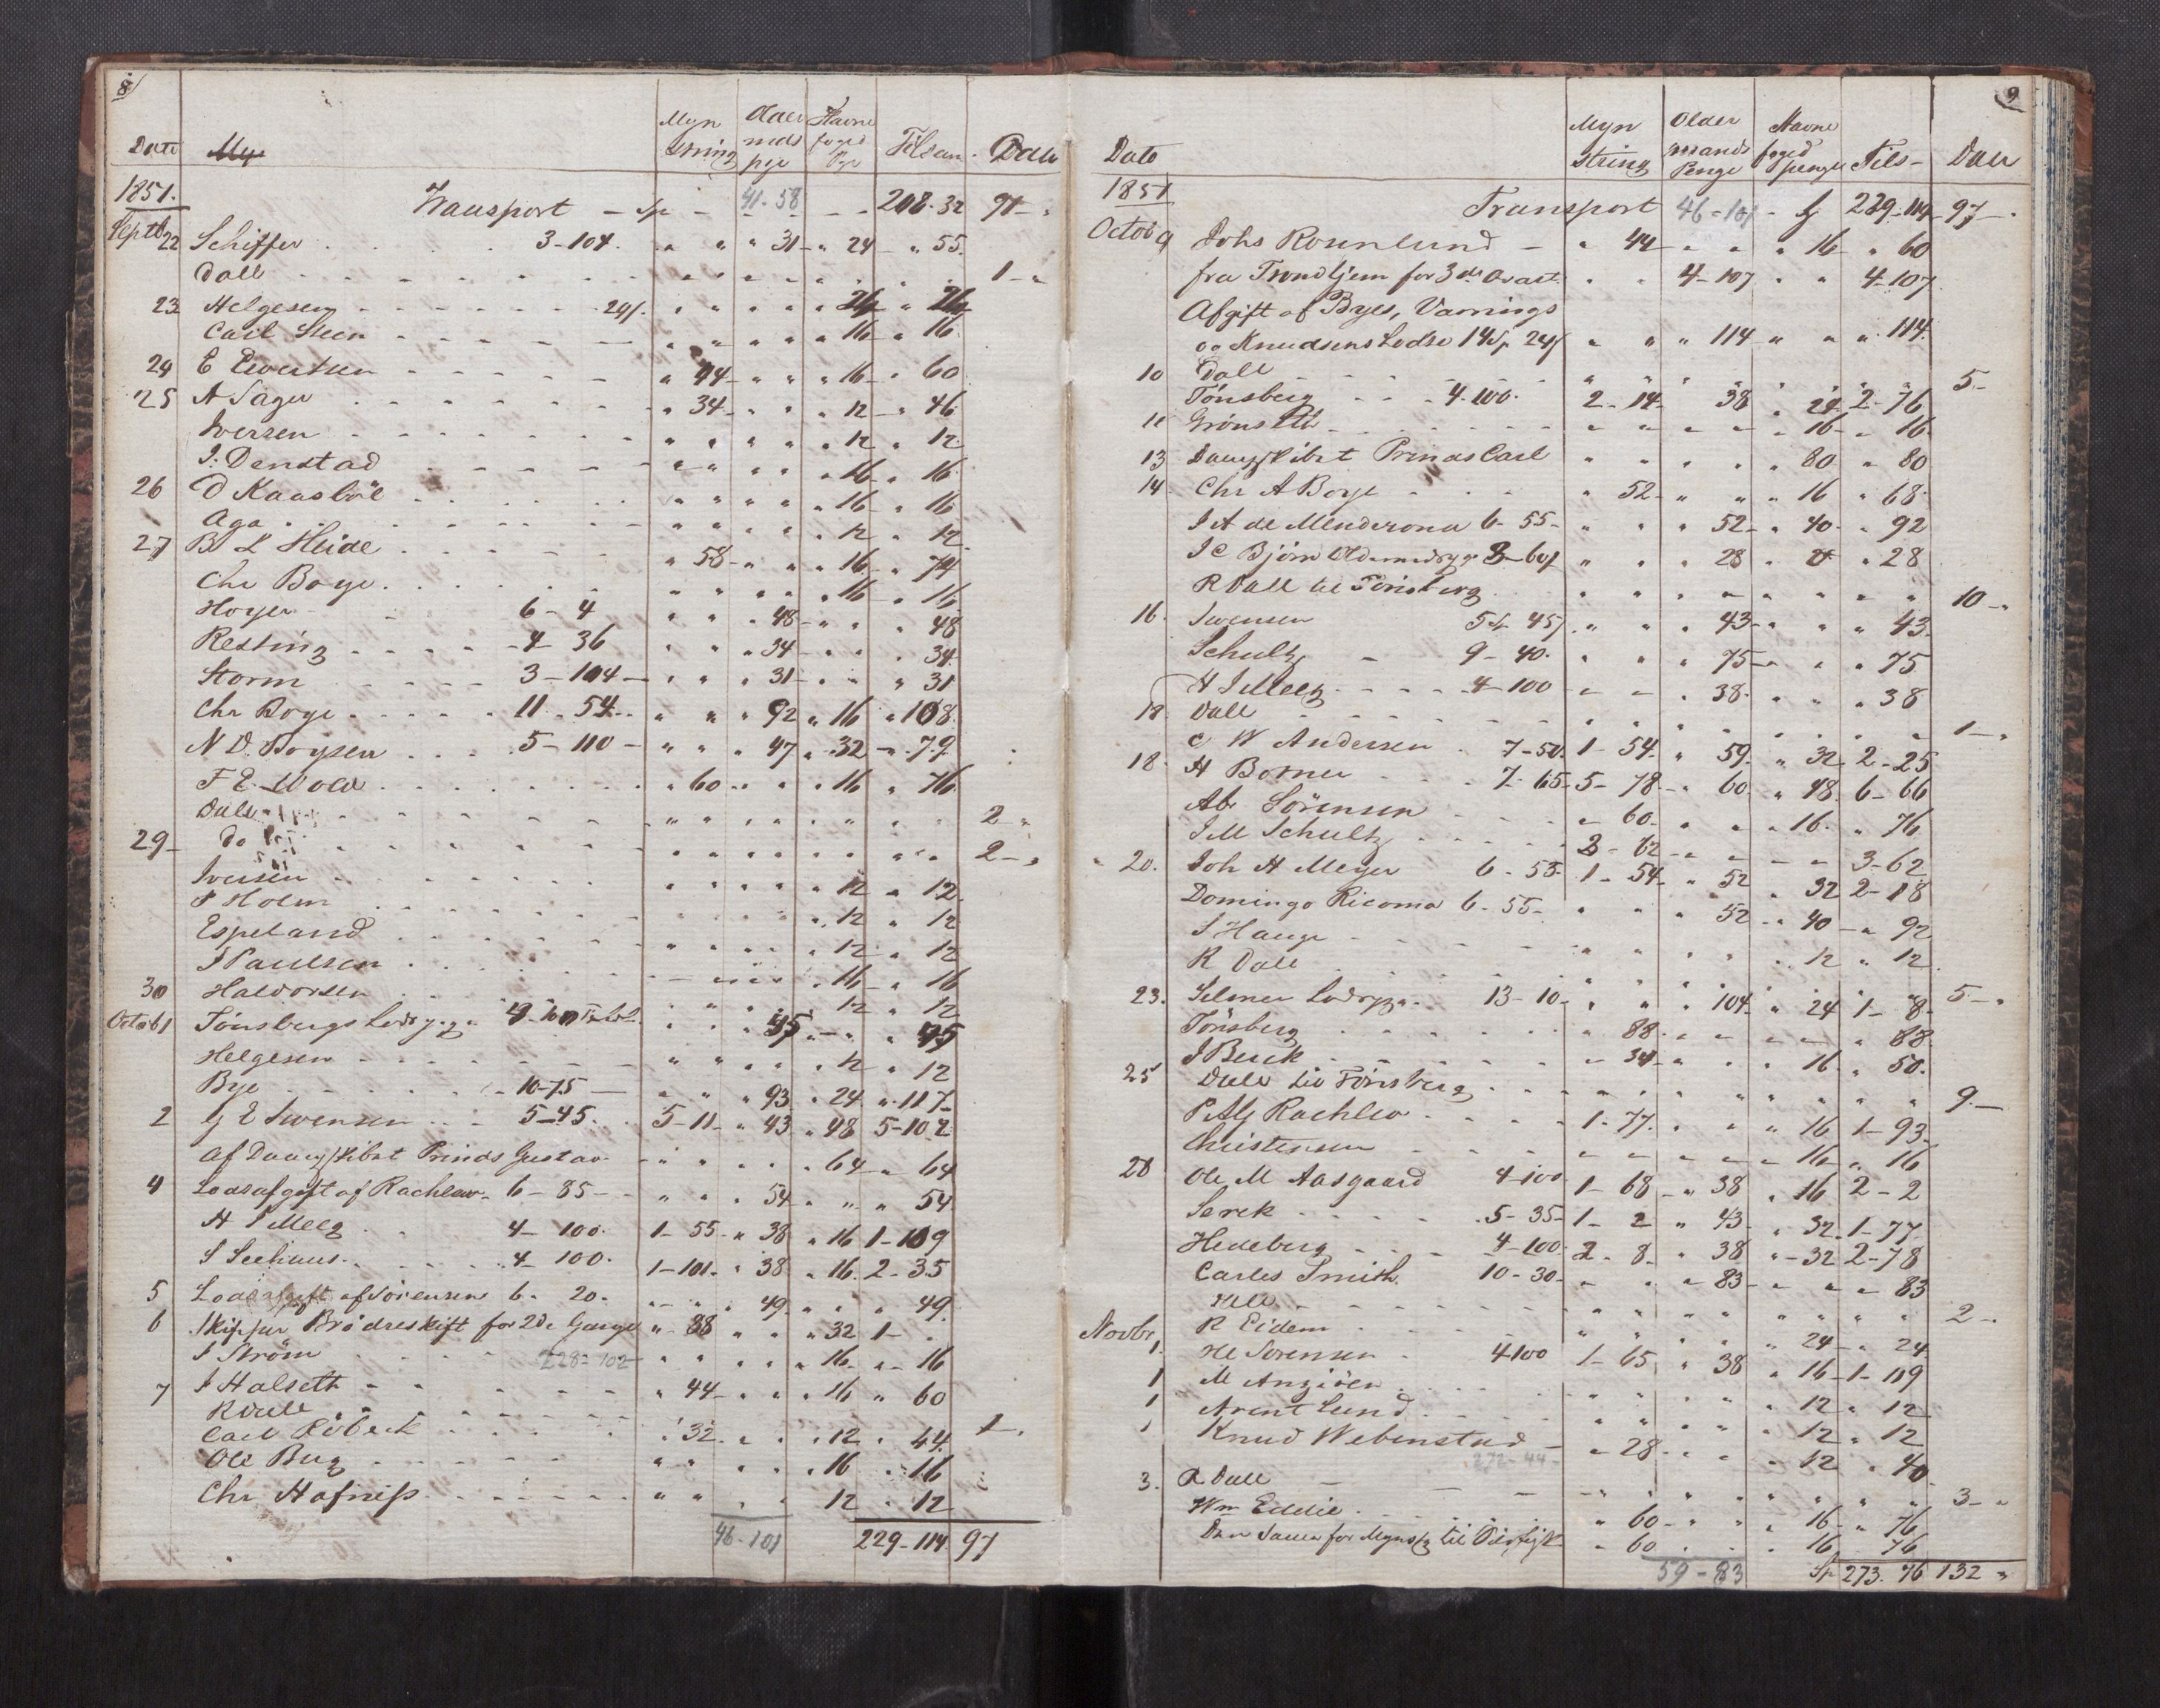 8
Dato My Myn string Olde mds pge Havne foged Pge Tilsam. Dall
1851. Transport - Sp - 41-58 - - 208-32 91-"
Septb 22 Schiffer 3-104. " " " 31 - " 24 - " 55.
Dall 1-"
23 Helgesen 24/. " " " " 24 " 24
Carl Steen " " " " 16 " 16
24 E Evertsen " 44 - " " " 16 - " 60
25 A Sager " 34 - " " " 12 - " 46
Iversen " " " " 12 " 12
I. Denstad " " " " 16 " 16
26 D Kaasböl " " " " 16 " 16
Aga " " " " 12 " 12
27 B L Heide " 58 - " " " 16 " 74
Chr Boye " " " " 16 " 16
Hoyer 6-4 " " " 48 - " " " 48
Resting 4-36 " " " 34 - " " " 34
Storm 3-104 - " " " 31 - " " " 31
Chr Boye 11-54 - " " " 92 " 16 " 108
N D. Boysen 5-110 - " " " 47 " 32 - " 79
F E. Wold " 60 - " " " 16 " 76
Dall 2 "
29 - do 2 - "
Iversen " " " " 12 " 12
P Holm " 12 " 12
Espeland " " " " 12 " 12
I Paulsen " " " " 16 " 16
30 Haldorsen " " " " 12 " 12
Octob 1 Tönsbergs " " " 45 " - " 45
Helgesen " " " " 12 " 12
Bye 10-75 - " " " 93 " 24 " 117
2 G E Swensen 5-45. 5-11 - " 43 " 48 5-102
Af Dampskibet Prinds Gustav " " " " 64 " 64
4 Lodsafgift af Rachlew 6-85 - " " " 54 " " " 54
H I Meeg 4-100. 1-55 " 38 " 16 1-109
S Seehuus 4-100. 1-101 " 38 " 16 2-35
5 Lodsafgift af Sörensen 6-20. " " " 49 " " " 49.
6 Skipper Brödreskift for 2de Gange " 88 " " " 32 1- "
I Ström 228-102 " " " " 16 " 16
7 I Halseth " 44 - " " " 16 " 60
R Dall 1-"
Carl Röbeck " 32 " " " 12 " 44
Ole Berg " " " " 16 " 16
Chr Hafniss " " " " 12 " 12
46-101 229-114 97
9
Dato Myn string Older mands Penge Havne foged penge Tils- Dall
1851 Transport 46-101 - 229-114 - 97-"
Octob 9 Johs Rosenlund - " 44 - " " " 16 " 60
fra Trondhjem for 3de Qvart. " " 4-107 " " 4-107
Afgift af Byes, Varnings
og Knudsens Lodse 14 Sp 24/ " " " 114 " " " 114.
10 Dall 5-
Tönsberg 4-100. 2-14 - 38 " 24 2-76
11 Grönseth " " " " 16 " 16
13 Dampskibet Prinds Carl " " " " 80 " 80
14. Chr A Boye " 52 " " " 16 " 68
I A de Menderona 6-55 - " " " 52 " 40 " 92
I C Björn 3-60/ " " " 28 " " " 28
R Dall til Tönsberg 10-"
16. Swensen 5 Sp 45/ " " " 43 - " " " 43
Schultz - 9-40. " " " 75 - " " " 75
H I Meeg 4-100 - " " 38 " " " 38
18. Dall 1-"
C W Andersen 7-50. 1-54 " 59. " 32 2-25
18. H Borner 7-65 - 5-78 - " 60 " 48 6-66
Abr Sörensen " 60 - " " " 16. " 76
I M Schultz 3-62 - " - " 3-62
20. Joh H Meyer 6-55 - 1-54 " 52 " 32 2-18
Domingo Ricoma 6-55 - " " " 52 " 40 - " 92
I Hauge " " " " 12 " 12
R Dall 5-"
23. Selmer Lodspge 13-10 - " " " 104 " 24 1-8
Tönsberg " 88 - " " " " 88
I Berck " 34 " " " 16 " 50.
25 Dall til Tönsberg 9-
P Alf Rachlew 1-77. " " " 16 1-93
Christensen " " " " 16 " 16
28 Ole M Aasgaard 4-100 1-68 - " 38 " 16 2-2
Serck 5-35 - 1-2 " 43 " 32 1-77
Hedeberg 4-100 2-8 " 38 " 32 2-78
Carles Smith 10-30 - " " " 83 - " " " 83
Dall 2-"
R Eidem " " " " 24 " 24
Novbr 1. Sörensen 4-100 1-65 " 38 " 16 - 1-119
1 M Angiöen " " " " 12 " 12
1 Arent Lund " " " " 12 " 12
1 Knud Webenstad " 28 - " " " 12 " 40
272-44-
3. R Dall 3-"
Wm Eddie " 60 - " " " 16 - " 76
Den samme for Mynstg til " 60 " " " 16 - 76
59-83 Sp 273. 76 132 "